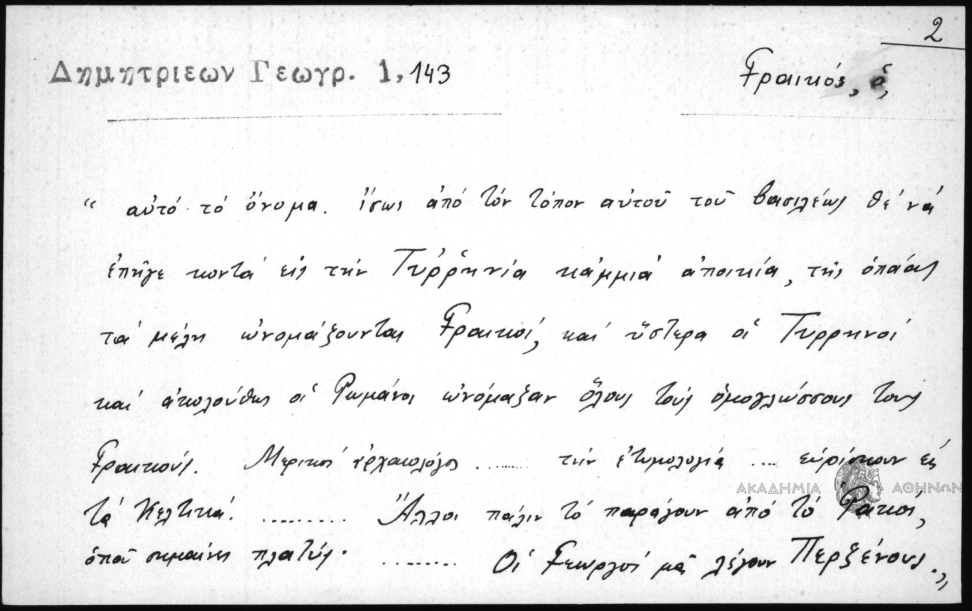 2
Δημητριεων Γεωγρ. 1, 143
Γραικός, ὁ
“ αὐτό τό ὄνομα. ἴσως ἀπό τόν τόπον αὐτοῦ τοῦ βασιλέως θέ νά
ἐπῆγε κοντά εἰς τήν Τυῤῥηνία κάμμιά ἀποικία, τῆς ὁποίας
τά μέλη ὠνομάζουνται Γραικοί, καί ὕστερα οἱ Τυρρηνοί
καί ἀκολούθως οἱ Ρωμάνοι ὠνόμαζαν ὅλους τούς ὁμογλώσσους τους
Γραικούς. Μερικοί ἀρχαιολόγοι ........ τήν ἐτυμολογία .... εὑρίσκουν εἰς
ΑΚΑΔΗΜΙΑ ΑΘΗΝΩΝ
τά Κελτικά. ........... Ἄλλοι πάλιν τό παράγουν ἀπό τό Ῥακοί,
ὁποῦ σημαίνει πλατύς. ........ Οἱ Γεωργοί μᾶς λέγουν Περξένους. „